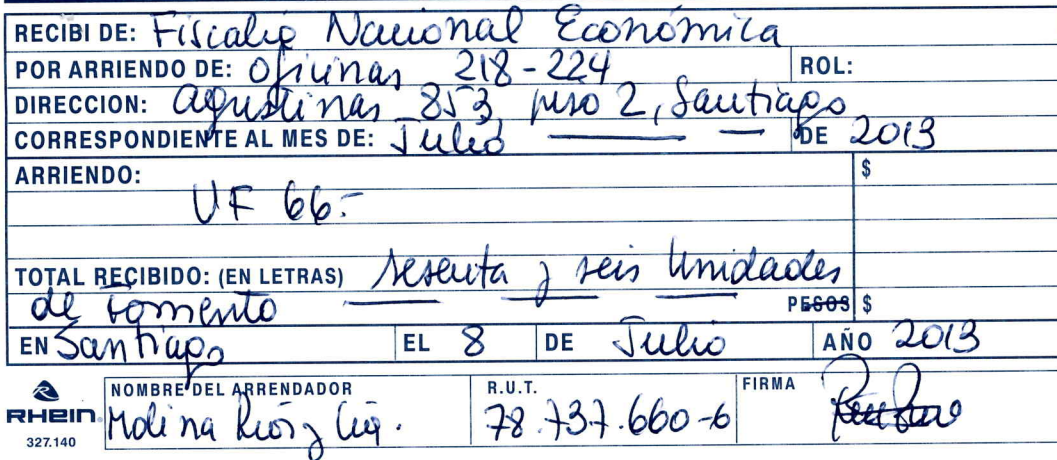 RECIBI DE: Fiscalía Nacional Económica
POR ARRIENDO DE: Oficinas 218-224 ROL:
DIRECCION: Agustinas 853, piso 2, Santiago
CORRESPONDIENTE AL MES DE: Julio DE 2013
ARRIENDO: $
UF 66.-
TOTAL RECIBIDO: (EN LETRAS) Sesenta y seis Unidades
de Fomento PESOS $
EN Santiago EL 8 DE Julio AÑO 2013
NOMBRE DEL ARRENDADOR R.U.T. FIRMA
RHEIN Molina Ríos y Cía. 78.737.660-6
327.140